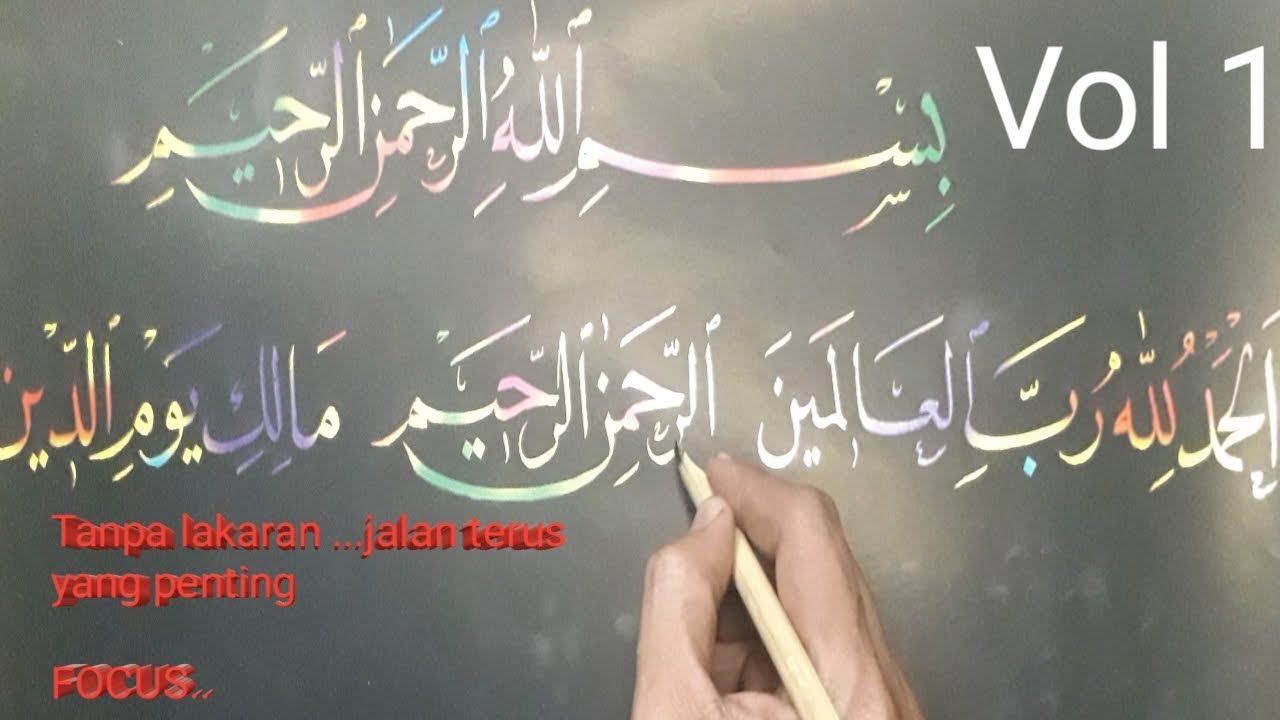 Vol 1
بِسْمِ ٱللَّهِ ٱلرَّحْمَٰنِ ٱلرَّحِيمِ
ٱلْحَمْدُ لِلَّهِ رَبِّ ٱلْعَالَمِينَ ٱلرَّحْمَٰنِ ٱلرَّحِيمِ مَالِكِ يَوْمِ ٱلدِّينِ
Tanpa lakaran ...jalan terus
yang penting
FOCUS..